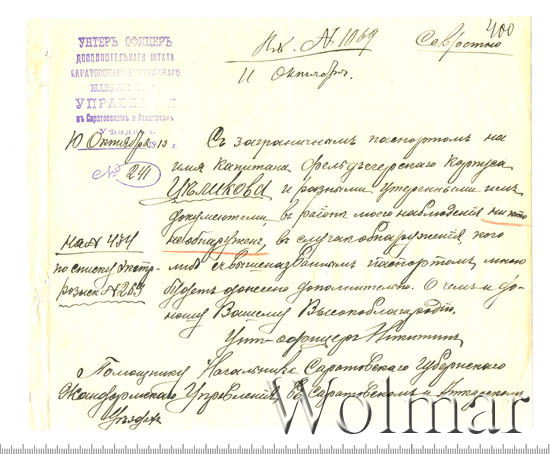 400
Вх. № 1069
Секретно
11 Октября
УНТЕРЪ ОФИЦЕРЪ
ДОПОЛНИТЕЛЬНАГО ШТАТА
САРАТОВСКАГО ГУБЕРНСКАГО
ЖАНДАРМСКАГО
УПРАВЛЕНІЯ
въ Саратовскомъ и Аткарскомъ
Уѣздахъ
10 Октября 1913 г.
№ 241
На № 474
по списку
розыск. № 263
Съ заграничнымъ паспортомъ на
имя Капитана Фельдъегерскаго Корпуса
и разными утерянными имъ
документами, въ районѣ моего наблюденія никто
необнаруженъ, въ случаѣ обнаруженія кого
либо съ вышеназваннымъ паспортомъ, мною
будетъ донесено дополнительно. О чемъ и до-
ношу Вашему Высокоблагородію.
Унт-офицеръ Никитинъ
Помощнику Начальника Саратовскаго Губернскаго
Жандармскаго Управленія, въ Саратовскомъ и Аткарскомъ
Уѣздахъ
Wolmar